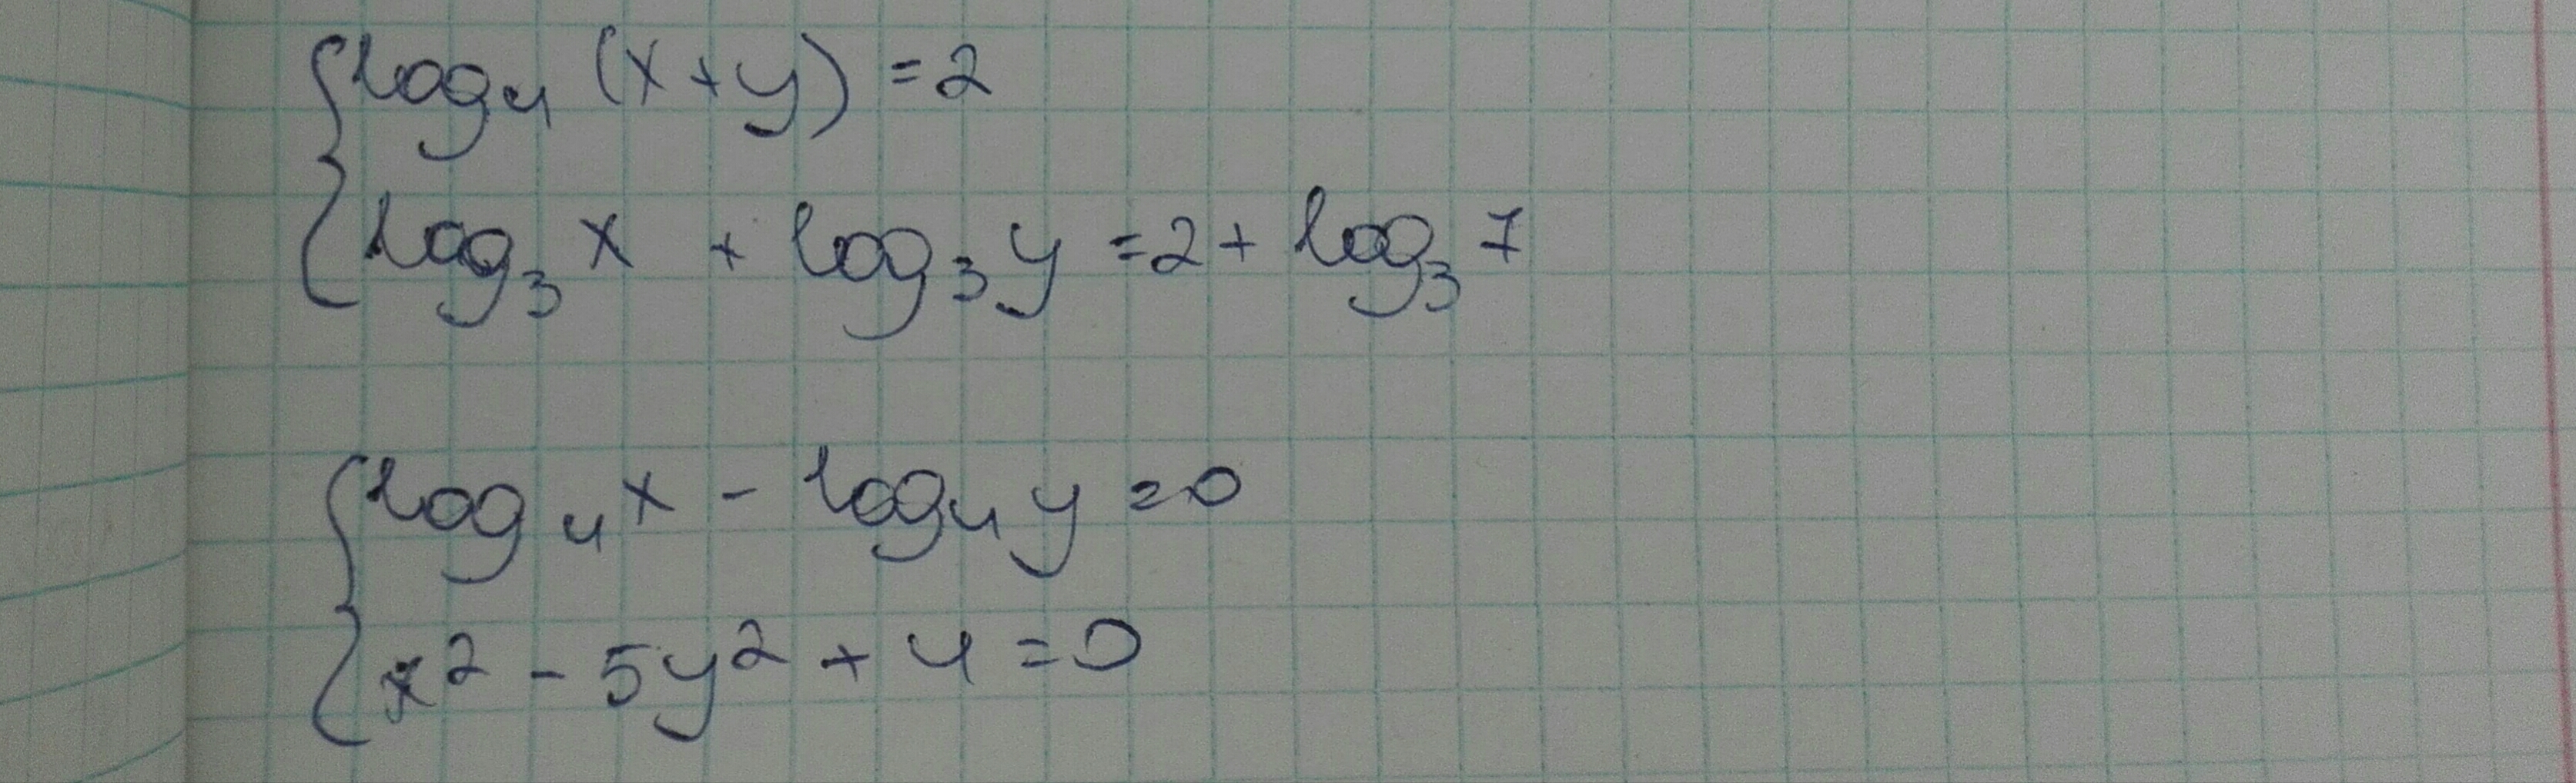 log₄ (x+y) = 2
log₃ x + log₃ y = 2 + log₃ 7
log₄ x - log₄ y = 0
x² - 5y² + 4 = 0